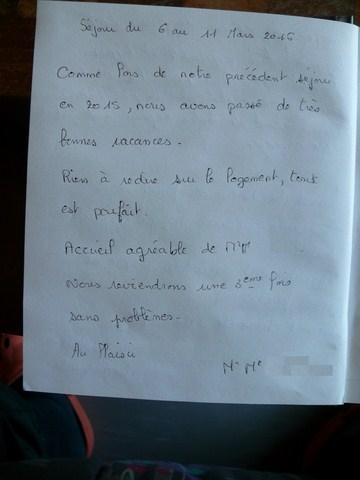 Séjour du 6 au 11 Mars 2016
Comme lors de notre précédent séjour
en 2015, nous avons passé de très
bonnes vacances.
Rien à redire sur le logement, tout
est parfait.
Accueil agréable de MM
Nous reviendrons une 3ème fois
sans problèmes.
Au Plaisir
Mr Me